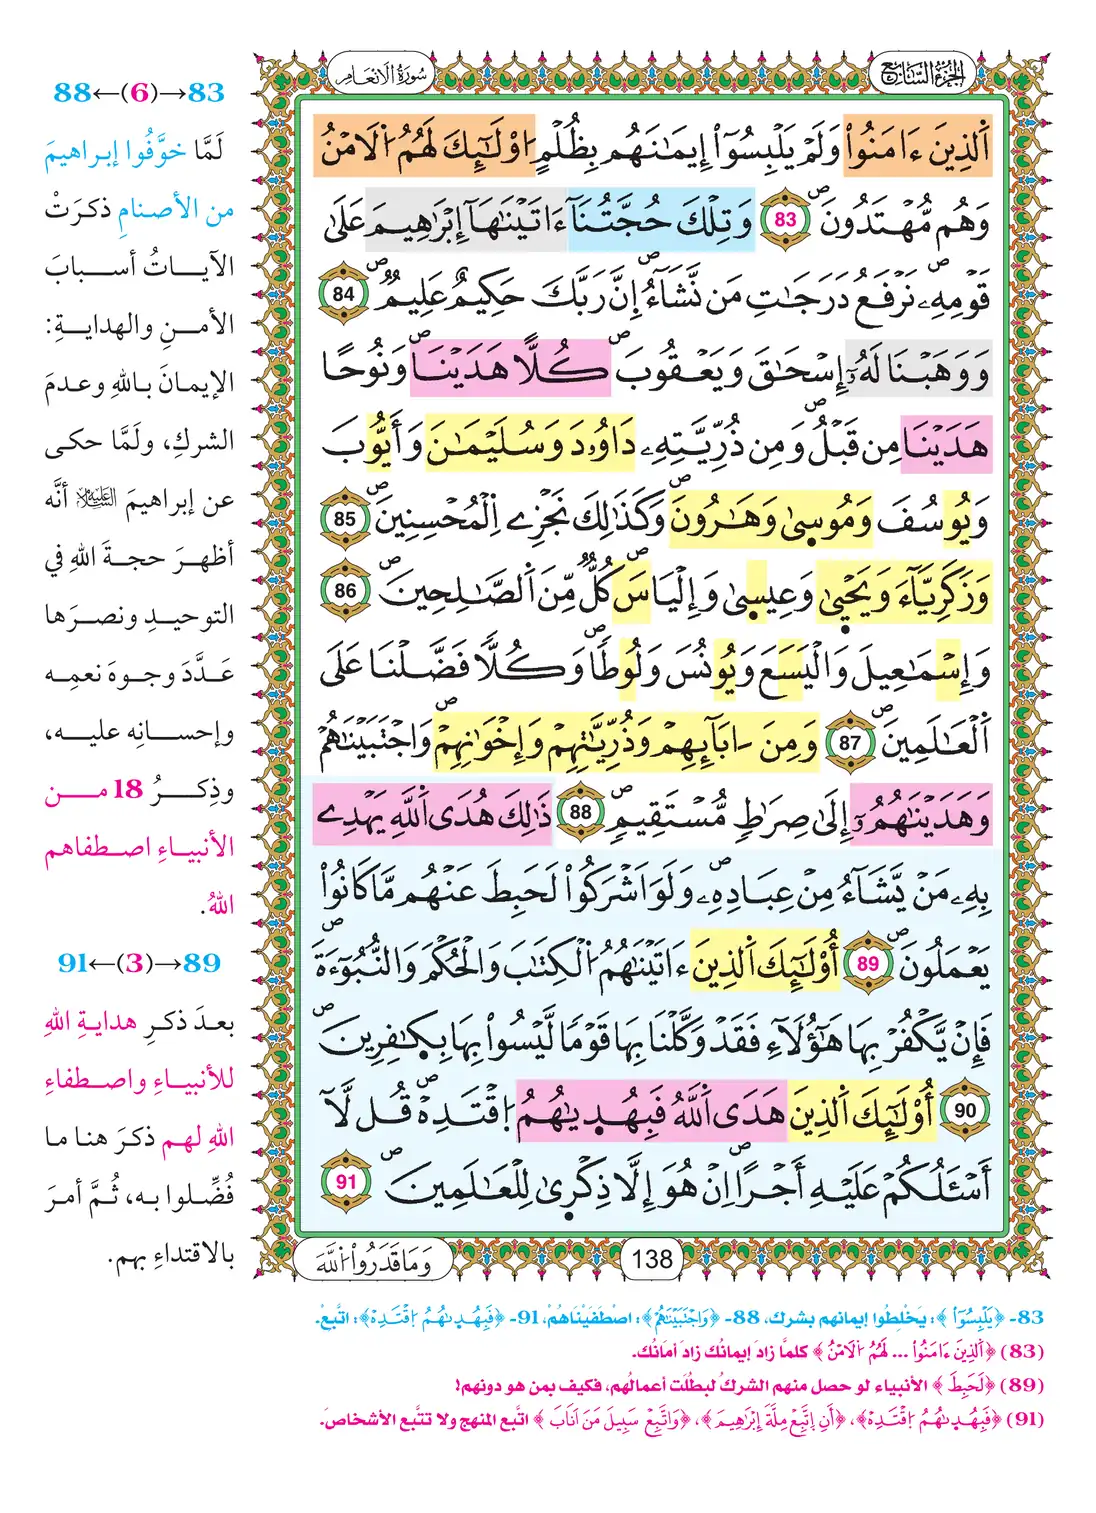 الجزء السابع
سورة الأنعام
اَ۬لذِينَ ءَامَنُواْ وَلَمْ يَلْبِسُوٓاْ إِيمَٰنَهُم بِظُلْمٍ ا۟وْلَٰٓئِكَ لَهُمُ اُ۬لَامْنُ
وَهُم مُّهْتَدُونَۖ 83 وَتِلْكَ حُجَّتُنَآ ءَاتَيْنَٰهَآ إِبْرَٰهِيمَ عَلَىٰ
قَوْمِهِۦۖ نَرْفَعُ دَرَجَٰتِ مَن نَّشَآءُۖ إِنَّ رَبَّكَ حَكِيمٌ عَلِيمٌۖ 84
وَوَهَبْنَا لَهُۥٓ إِسْحَٰقَ وَيَعْقُوبَۖ كُلًّا هَدَيْنَاۖ وَنُوحًا
هَدَيْنَا مِن قَبْلُۖ وَمِن ذُرِّيَّتِهِۦ دَاوُۥدَ وَسُلَيْمَٰنَ وَأَيُّوبَ
وَيُوسُفَ وَمُوسىٰ وَهَٰرُونَۖ وَكَذَٰلِكَ نَجْزِے اِ۬لْمُحْسِنِينَۖ 85
وَزَكَرِيَّآءَ وَيَحْيىٰ وَعِيسىٰ وَإِلْيَاسَۖ كُلٌّ مِّنَ اَ۬لصَّٰلِحِينَۖ 86
وَإِسْمَٰعِيلَ وَالْيَسَعَ وَيُونُسَ وَلُوطًاۖ وَكُلًّا فَضَّلْنَا عَلَى
اَ۬لْعَٰلَمِينَۖ 87 وَمِنَ اٰبَآئِهِمْ وَذُرِّيَّٰتِهِمْ وَإِخْوَٰنِهِمْ وَاجْتَبَيْنَٰهُمْ
وَهَدَيْنَٰهُمُۥٓ إِلَىٰ صِرَٰطٍ مُّسْتَقِيمٍۖ 88 ذَٰلِكَ هُدَى اَ۬للَّهِ يَهْدِے
بِهِۦ مَنْ يَّشَآءُ مِنْ عِبَادِهِۦۖ وَلَوَ اَشْرَكُواْ لَحَبِطَ عَنْهُم مَّا كَانُواْ
يَعْمَلُونَۖ 89 أُوْلَٰٓئِكَ اَ۬لذِينَ ءَاتَيْنَٰهُمُ اُ۬لْكِتَٰبَ وَالْحُكْمَ وَالنُّبُوٓءَةَۖ
فَإِنْ يَّكْفُرْ بِهَا هَٰٓؤُلَآءِ فَقَدْ وَكَّلْنَا بِهَا قَوْمًا لَّيْسُواْ بِهَا بِكٰ۪فِرِينَۖ
90 أُوْلَٰٓئِكَ اَ۬لذِينَ هَدَى اَ۬للَّهُ فَبِهُد۪يٰهُمُ اُ۪قْتَدِهْۖ قُل لَّآ
أَسْـَٔلُكُمْ عَلَيْهِ أَجْرًاۖ اِنْ هُوَ إِلَّا ذِكْر۪ىٰ لِلْعَٰلَمِينَۖ 91
وَمَا قَدَرُواْ اُ۬للَّهَ
138
83→(6)←88
لَمَّا خوَّفُوا إبراهيمَ
من الأصنامِ ذكرَتْ
الآياتُ أسبابَ
الأمنِ والهدايةِ:
الإيمانَ باللهِ وعدمَ
الشركِ، ولَمَّا حكى
عن إبراهيمَ عليه السلام أنَّه
أظهرَ حجةَ اللهِ في
التوحيدِ ونصرَها
عدَّدَ وجوهَ نعمِه
وإحسانِه عليه،
وذِكرُ 18 من
الأنبياءِ اصطفاهم
اللهُ.
89→(3)←91
بعدَ ذكرِ هدايةِ اللهِ
للأنبياءِ واصطفاءِ
اللهِ لهم ذكرَ هنا ما
فُضِّلوا به، ثُمَّ أمرَ
بالاقتداءِ بهم.
83- ﴿يَلْبِسُوٓاْ﴾: يَخْلِطُوا إيمانهم بشرك، 88- ﴿وَاجْتَبَيْنَٰهُمْ﴾: اصْطَفَيْنَاهُمْ، 91- ﴿فَبِهُد۪يٰهُمُ اُ۪قْتَدِهْ﴾: اتَّبِعْ.
(83) ﴿اَ۬لذِينَ ءَامَنُواْ ... لَهُمُ اُ۬لَامْنُ﴾ كلمَّا زادَ إيمانُك زادَ أمانُك.
(89) ﴿لَحَبِطَ﴾ الأنبياء لو حصل منهم الشركُ لبطُلَت أعمالُهم، فكيف بمن هو دونهم!
(91) ﴿فَبِهُد۪يٰهُمُ اُ۪قْتَدِهْ﴾، ﴿أَنِ اِتَّبِعْ مِلَّةَ إِبْرَٰهِيمَ﴾، ﴿وَاتَّبِعْ سَبِيلَ مَنَ اَنَابَ﴾ اتَّبع المنهج ولا تتَّبع الأشخاصَ.